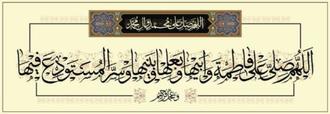 اللهم صل علی محمد وآل محمد
اللهم صلی علی فاطمة وابیها وبعلها وبنیها وسر المستودع فیها